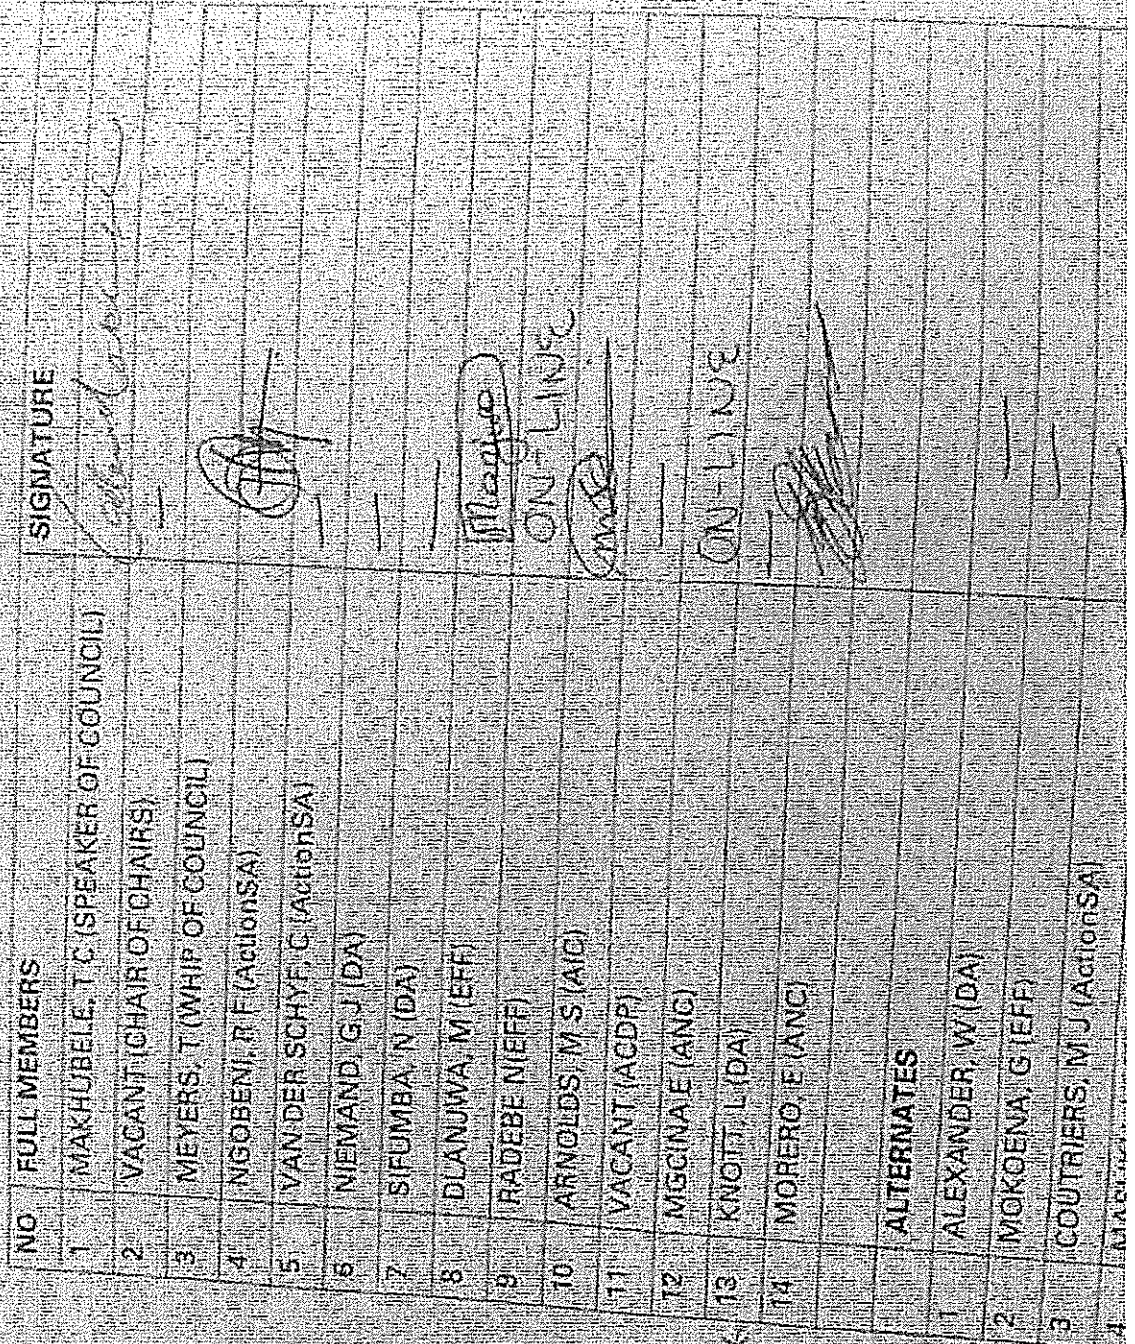 NO FULL MEMBERS SIGNATURE
1 MAKHUBELE, T C (SPEAKER OF COUNCIL)
2 VACANT (CHAIR OF CHAIRS) —
3 MEYERS, T (WHIP OF COUNCIL)
4 NGOBENI, R F (ActionSA)
5 VAN DER SCHYF, C (ActionSA) —
6 NIEMAND, G J (DA) —
7 SIFUMBA, N (DA) —
8 DLANJWA, M (EFF)
9 RADEBE N(EFF) ON-LINE
10 ARNOLDS, M S (AIC)
11 VACANT (ACDP) —
12 MGCINA E (ANC) ON-LINE
13 KNOTT, L (DA) —
14 MORERO, E (ANC)
ALTERNATES
1 ALEXANDER, W (DA)
2 MOKOENA, G (EFF) —
3 COUTRIERS, M J (ActionSA) —
4